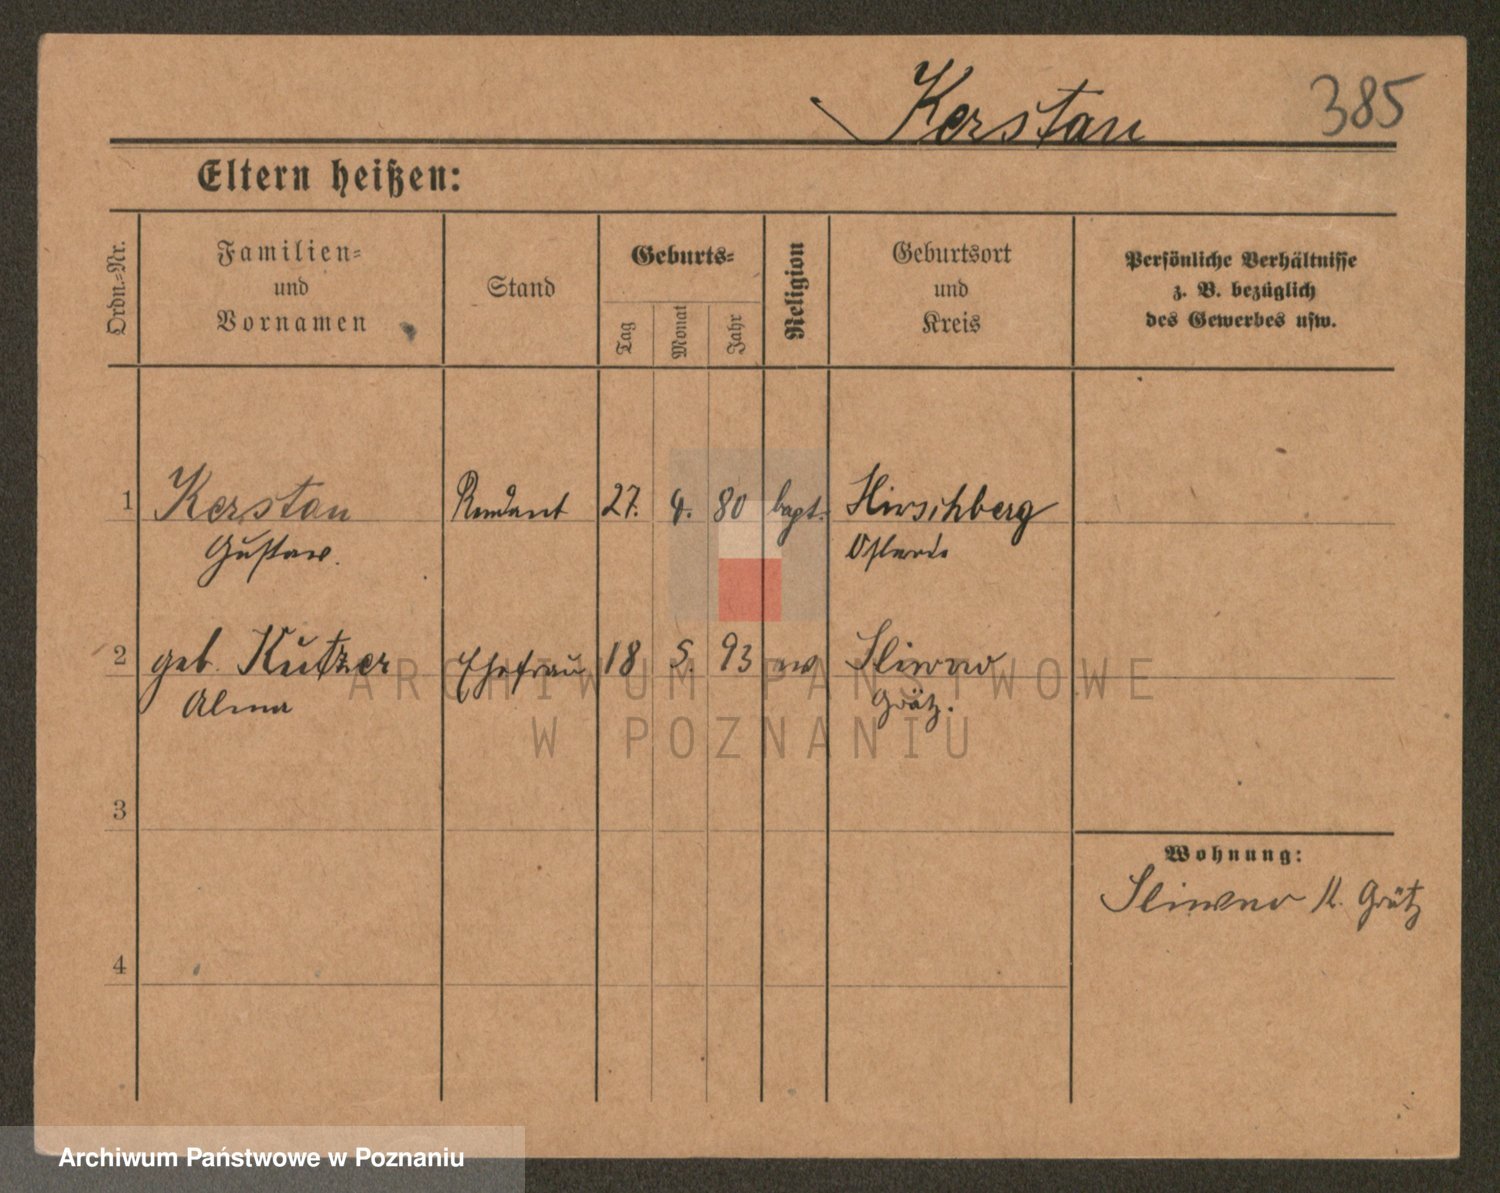 Kerstan 385
Eltern heißen:
Ordn.-Nr.
Familien-
und
Vornamen
Stand
Geburts-
Tag
Monat
Jahr
Religion
Geburtsort
und
Kreis
Persönliche Verhältnisse
z. B. bezüglich
des Gewerbes usw.
1 Kerstan Rendant 27. 80 bapt. Hirschberg
Gustav. Osterode
2 geb. Kutzer Ehefrau 18 5. 93 ev Sliwno
Alma Grätz.
3
Wohnung:
Sliwno K. Grätz
4
ARCHIWUM PAŃSTWOWE
W POZNANIU
Archiwum Państwowe w Poznaniu